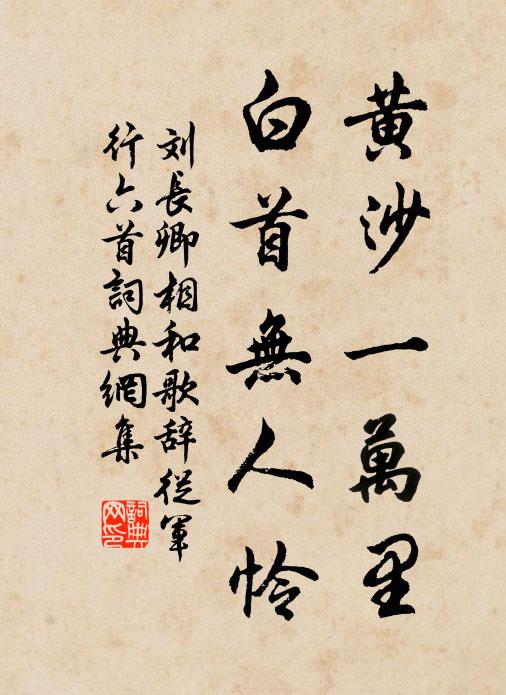 黄沙一萬里
白首無人怜
刘長卿相和歌辞從軍
行六首詞典網集
詞典
网印